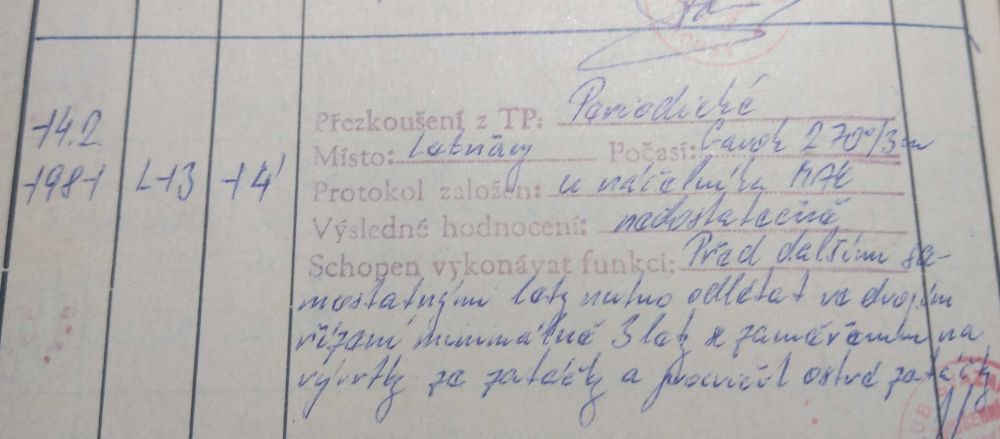 14.2.
1981 L-13 14'
Přezkoušení z TP: Periodické
Místo: Letňany Počasí: Cavok 270°/3m
Protokol založen: u náčelníka MAK
Výsledné hodnocení: nedostatečně
Schopen vykonávat funkci: Před dalšími sa-
mostatnými lety nutno odlétat ve dvojím
řízení minimálně 3 lety se zaměřením na
vývrtky ze zatáčky a procvičit ostré zatáčky